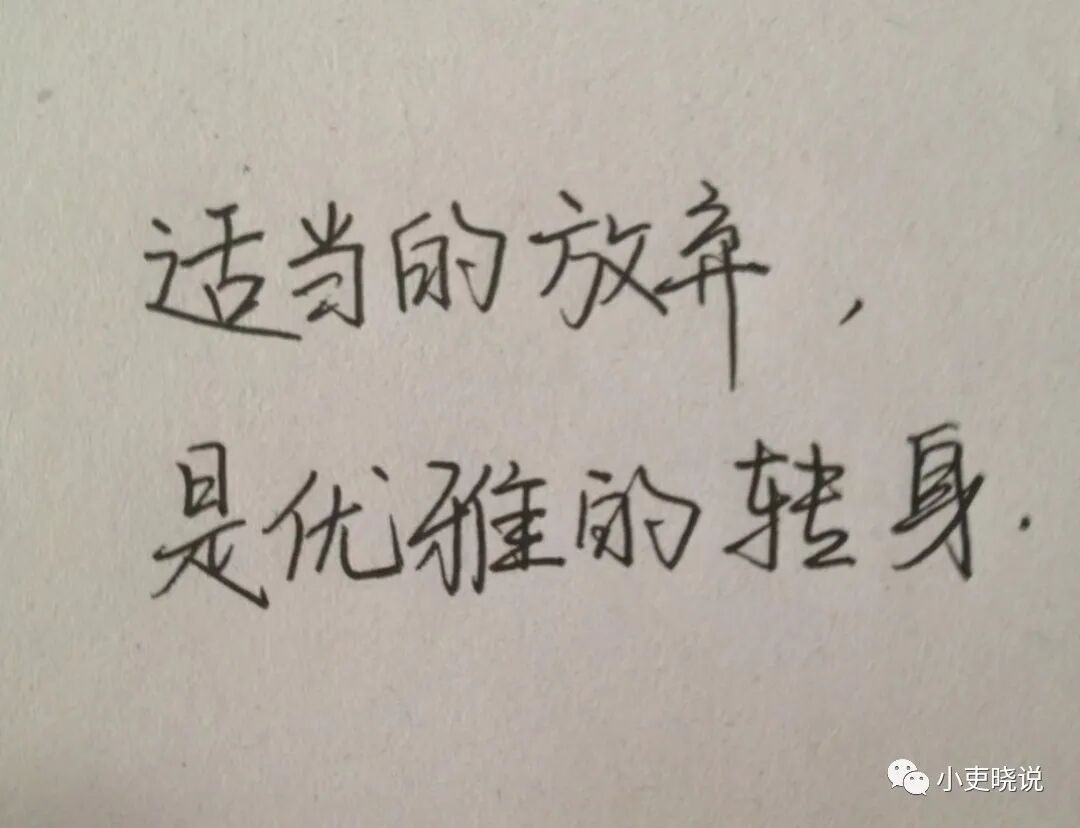 适当的放弃，
是优雅的转身.
小吏晓说